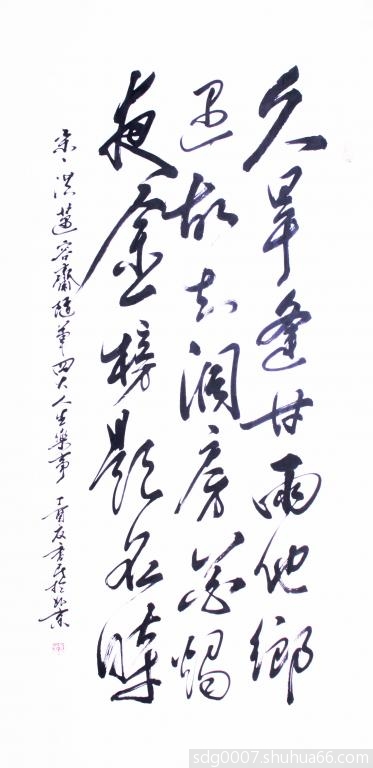 久旱逢甘雨他鄉
遇故知洞房花燭
夜金榜題名時
宋、洪邁容齋隨筆四大人生樂事 丁酉 於北京
sdg0007.shuhua66.com